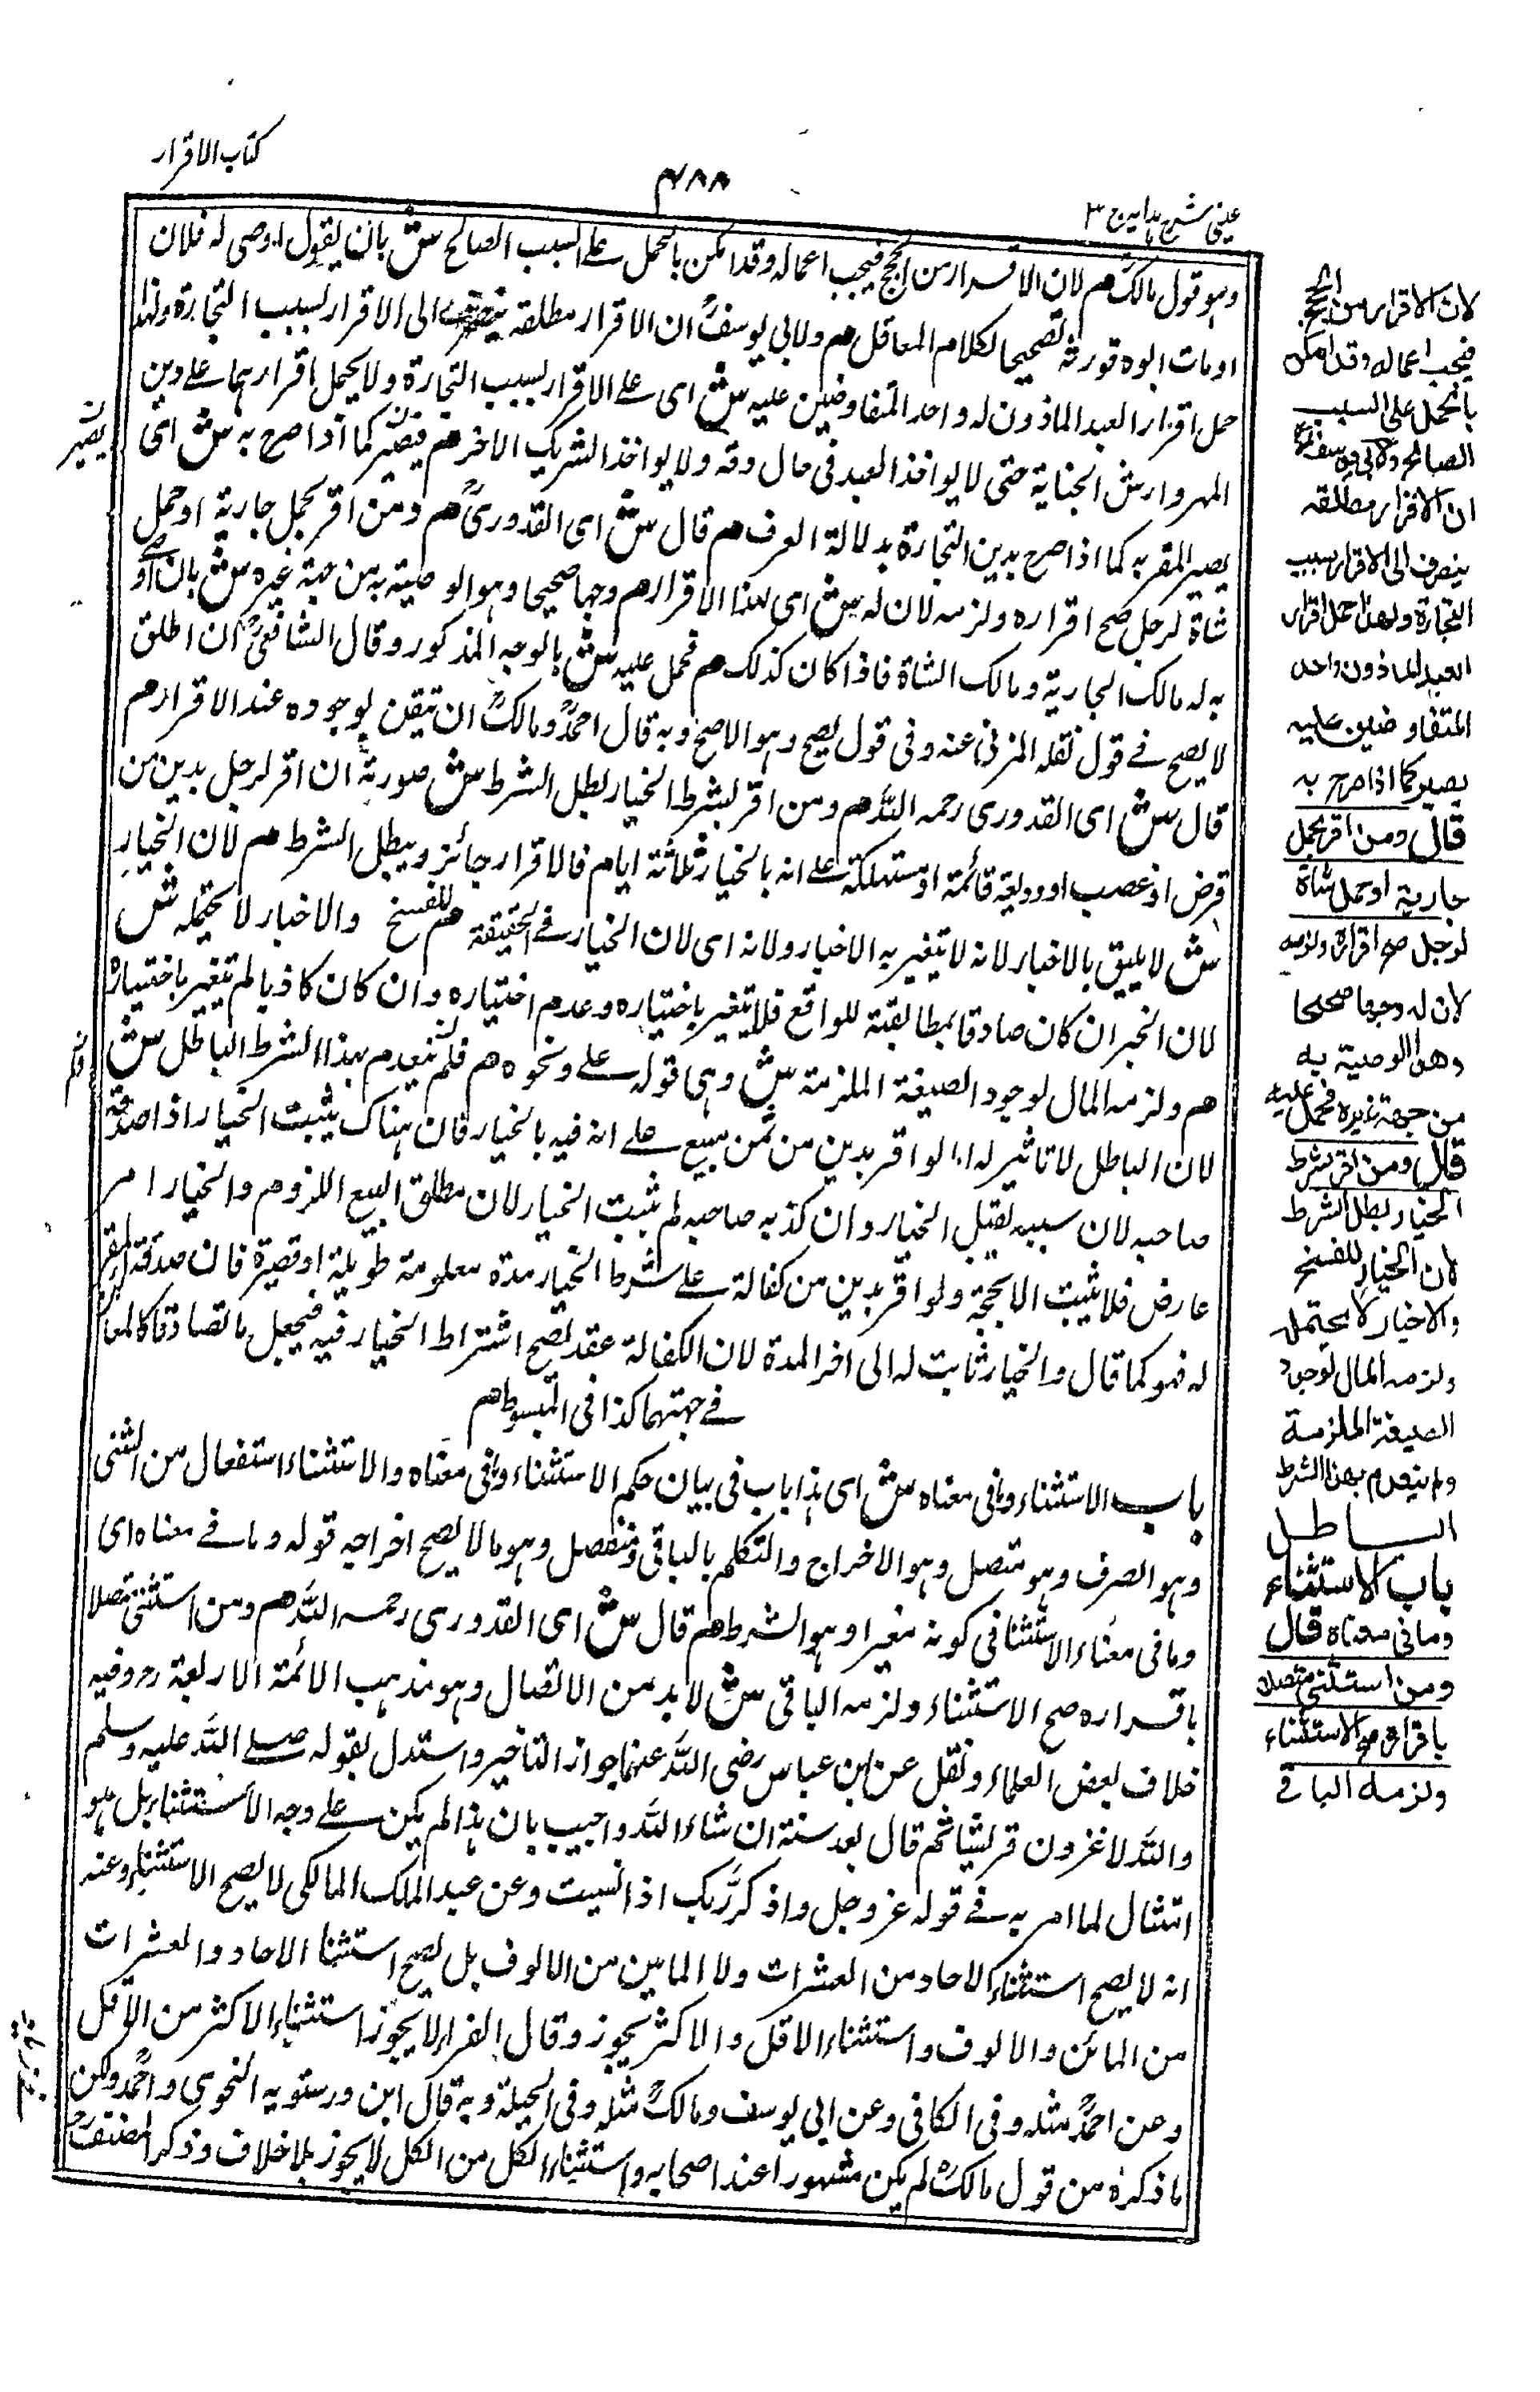 كتاب الاقرار
عينى شرح هدايه ج ٣
وهو قول مالك هم لان الاقرار من الحجج فيجب اعماله وقد امكن بالحمل على السبب الصالح ش بان يقول اوصى له فلان
او مات ابوه فورثه تصحيحا لكلام العاقل هم ولابي يوسف ان الاقرار مطلقه ينصرف الى الاقرار بسبب التجارة ولهذا
حمل اقرار العبد الماذون له واحد المتفاوضين عليه ش اى على الاقرار بسبب التجارة ولا يحمل اقرارهما على دين
المهر وارش الجناية حتى لا يواخذ العبد فى حال رقه ولا يواخذ الشريك الاخر هم فيصير كما اذا صرح به ش اى
يصير المقر به كما اذا صرح بدين التجارة بدلالة العرف هم قال ش اى القدورى هم ومن اقر بحمل جارية او حمل
شاة لرجل صح اقراره ولزمه لان له ش اى لهذا الاقرار هم وجها صحيحا وهو الوصية به من جهة غيره ش بان اوصى
به له مالك الجارية ومالك الشاة فاذا كان كذلك هم فحمل عليه ش بالوجه المذكور وقال الشافعى ان اطلق
لا يصح فى قول نقله المزنى عنه وفى قول يصح وهو الاصح وبه قال احمد ومالك ان تيقن بوجوده عند الاقرار هم
قال ش اى القدورى رحمه الله هم ومن اقر بشرط الخيار بطل الشرط ش صورته ان اقر لرجل بدين من
قرض او غصب او وديعة قائمة او مستهلكة على انه بالخيار ثلاثة ايام فالاقرار جائز ويبطل الشرط هم لان الخيار
ش لا يليق بالاخبار لانه لا يتغير به الاخبار ولانه اى لان الخيار فى الحقيقة هم للفسخ والاخبار لا يحتمله ش
لان الخبر ان كان صادقا بمطابقته للواقع فلا يتغير باختياره وعدم اختياره وان كان كاذبا لم يتغير باختياره
هم ولزمه المال لوجود الصيغة الملزمة ش وهى قوله على ونحوه هم فلم ينعدم بهذا الشرط الباطل ش
لان الباطل لا تاثير له اما لو اقر بدين من ثمن مبيع على انه فيه بالخيار فان هناك يثبت الخيار اذا صدقه
صاحبه لان سببه يقبل الخيار وان كذبه صاحبه لم يثبت الخيار لان مطلق البيع اللزوم والخيار امر
عارض فلا يثبت الا بحجة ولو اقر بدين من كفالة على شرط الخيار مدة معلومة طويلة او قصيرة فان صدقه المقر
له فهو كما قال والخيار ثابت له الى اخر المدة لان الكفالة عقد يصح اشتراط الخيار فيه فيجعل ما تصادقا كالمعاين
فى جهتهما كذا فى المبسوط هم
باب الاستثناء وما فى معناه ش اى هذا باب فى بيان حكم الاستثناء وما فى معناه والاستثناء استفعال من الثنى
وهو الصرف وهو متصل وهو الاخراج والتكلم بالباقى ومنفصل وهو ما لا يصح اخراجه قوله وما فى معناه اى
وما فى معناء الاستثنا فى كونه مغيرا وهو الشرط هم قال ش اى القدورى رحمه الله هم ومن استثنى متصلا
باقراره صح الاستثناء ولزمه الباقى ش لا بد من الاتصال وهو مذهب الائمة الاربعة رح وفيه
خلاف بعض العلماء ونقل عن ابن عباس رضى الله عنهما جواز التاخير واستدل بقوله صلى الله عليه وسلم
والله لاغزون قريشا ثم قال بعد سنة ان شاء الله واجيب بان هذا لم يكن على وجه الاستثناء بل هو
امتثال لما امر به فى قوله عز وجل واذكر ربك اذا نسيت وعن عبد الملك المالكى لا يصح الاستثناء وعنه
انه لا يصح استثناء الاحاد من العشرات ولا المايين من الالوف بل يصح استثنا الاحاد والعشرات
من المائن والالوف واستثناء الاقل والاكثر يجوز وقال الفراء لا يجوز استثناء الاكثر من الاقل
وعن احمد مثله وفى الكافى وعن ابى يوسف ومالك مثله وفى الحيلة وبه قال ابن درستويه النحوى واحمد ولكن
ما ذكره من قول مالك لم يكن مشهورا عند اصحابه واستثناء الكل من الكل لا يجوز بلا خلاف وذكر المصنف
لان الاقرار من الحجج
فيجب اعماله وقد امكن
بالحمل على السبب
الصالح ولابى يوسف
ان الاقرار مطلقه
ينصرف الى الاقرار بسبب
التجارة ولهذا حمل اقرار
العبد الماذون واحد
المتفاوضين عليه
يصير كما اذا صرح به
قال ومن اقر بحمل
جارية او حمل شاة
لرجل صح اقراره ولزمه
لان له وجها صحيحا
وهو الوصية به
من جهة غيره فحمل عليه
قال ومن اقر بشرط
الخيار بطل الشرط
لان الخيار للفسخ
والاخبار لا يحتمله
ولزمه المال لوجود
الصيغة الملزمة
ولم ينعدم بهذا الشرط
الباطل
باب الاستثناء
وما فى معناه قال
ومن استثنى متصلا
باقراره صح الاستثناء
ولزمه الباقى